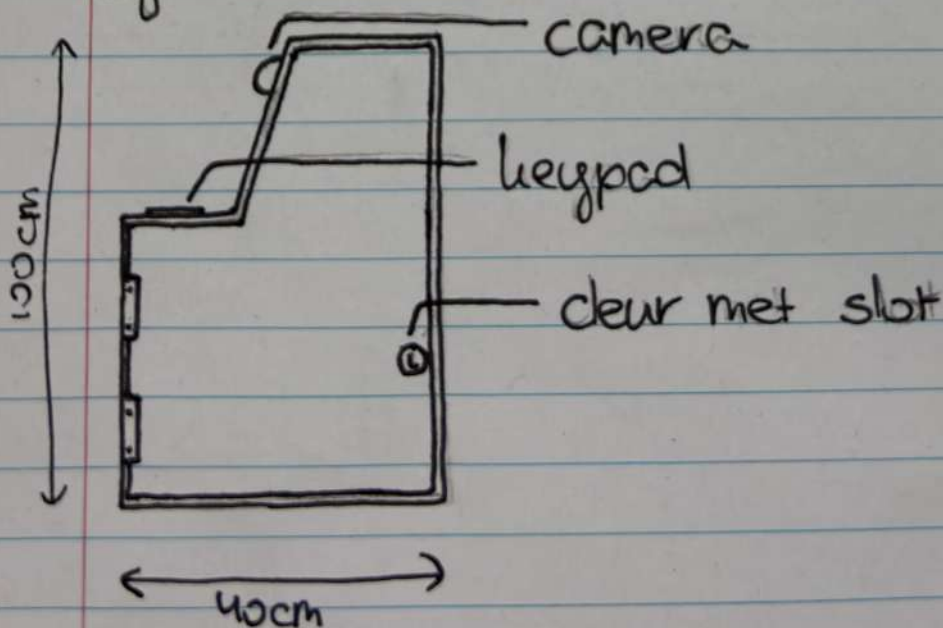 camera
keypad
deur met slot
100cm
40cm